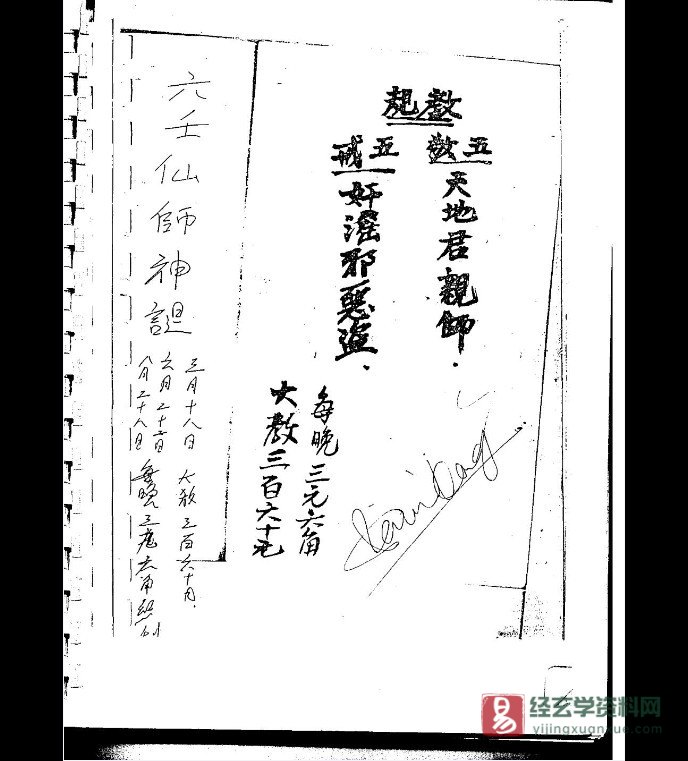 起教
五教 天地君親師.
五戒 奸淫邪惡盜.
每晚三元六角
大教三百六十元
六壬仙師神誕
三月十八日 大教三百六十元.
六月二十二日
八月二十八日 每晚三元六角
易
经玄学资料网
yijingxuanxue.com